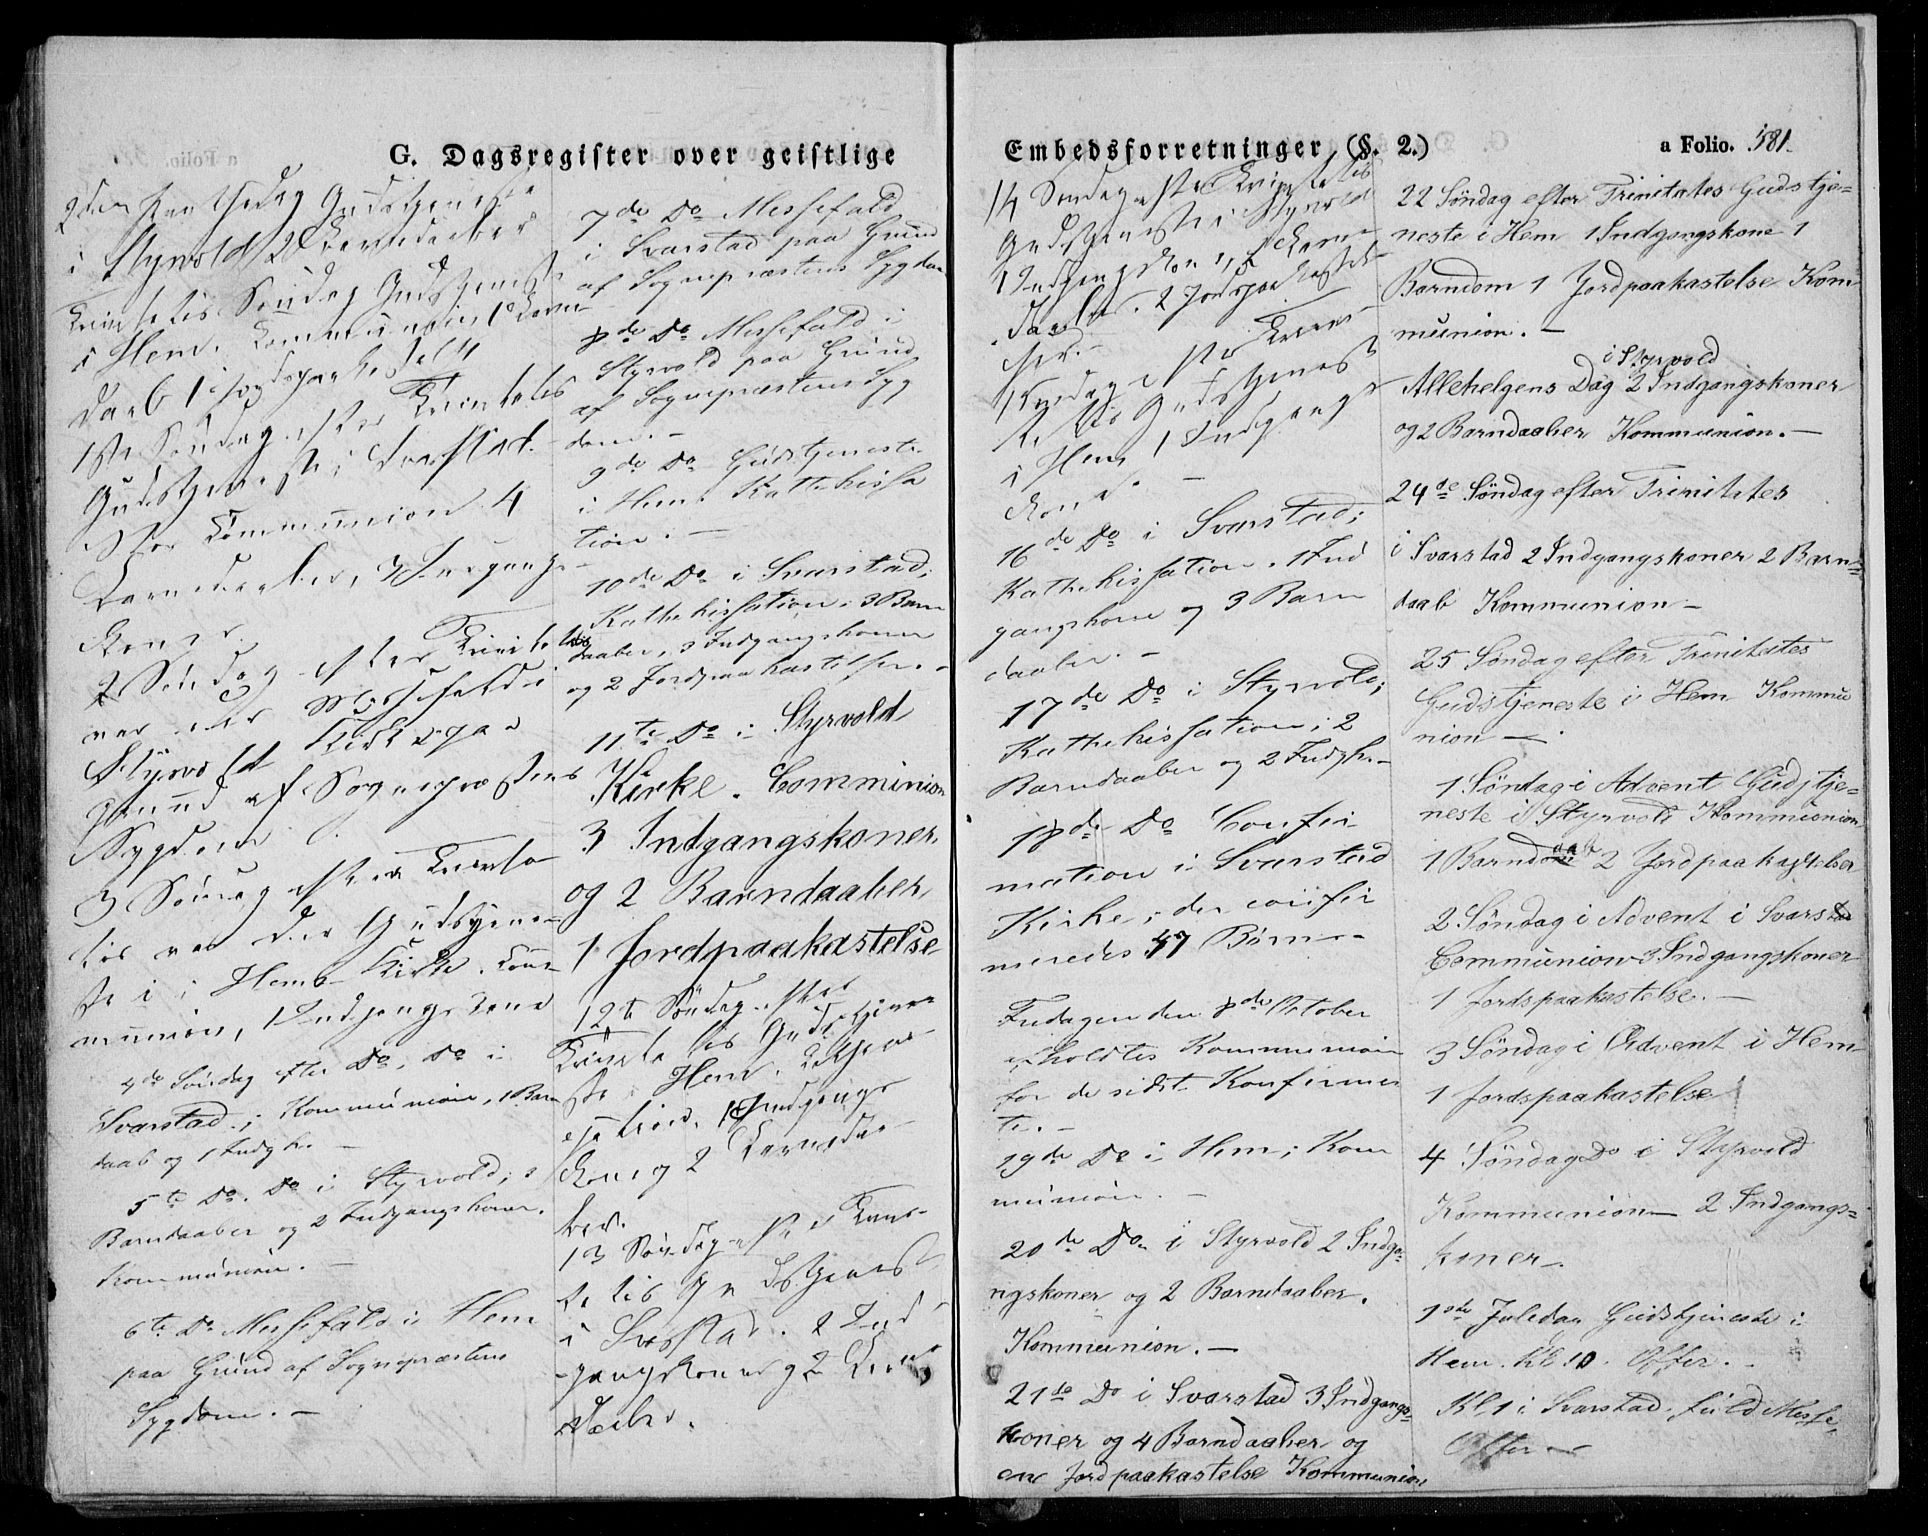 G. Dagsregister over geistlige
Embedsforretninger (§. 2.)
a Folio. 581.
Gudstjeneste
i Styrvold 2 Barndaaber
Trinitatis Søndag Gudstjeneste
i Hem. Communion 1 Barn
daab 1
1ste Søndag efter Trinitatis
Gudstjeneste i Svarstad
Communion 4
Barndaaber, 3 Indgangs
koner.
2 Søndag efter Trinitatis
var der Messefald i
Styrvold Kirke paa
Grund af Sognepræstens
Sygdom.
3 Søndag efter Trinita
tis var der Gudstjene-
ste i Hems Kirke. Com
munion, 1 Indgangskone
4de Søndag efter Do, Do i
Svarstad; Kommunion, 1 Barn
daab og 1 Indgk. —
5te Do. Do i Styrvold; 2
Barndaaber og 2 Indgangskoner.
Kommunion. —
6te Do Messefald i Hem
paa Grund af Sognepræstens
Sygdom. —
7de Do Messefald
i Svarstad paa Grund
af Sognepræstens Sygdom
8de Do Messefald i
Styrvold paa Grund
af Sognepræstens Syg
dom. —
9de Do Gudstjeneste
i Hem; Kathekisa
tion. —
10de Do i Svarstad;
Kathekisation; 3 Barn
daaber, 3 Indgangskoner
og 2 Jordpaakastelser. —
11te Do i Styrvold
Kirke. Comminion
3 Indgangskoner,
og 2 Barndaaber,
1 Jordpaakastelse
12te Søndag efter
Trinitatis Gudstjene
ste i Hem. Kathe
sation. 1 Indgangs
kone og 2 Barndaa
ber.
13 Søndag efter Trini
tatis Gudstjeneste
i Svarstad. 2 Ind
gangskoner og 2 Barn
daaber.
14 Søndag efter Trinitatis
Gudstjeneste i Styrvold
1 Indgangskone, Barn
daaber. 2 Jordpaakastel
ser. —
15 Søndag efter Trini
tatis Gudstjeneste
i Hem 1 Indgangs
kone. —
16de Do i Svarstad;
Kathekisation. 1 Ind
gangskone og 3 Barn
daaber. —
17de Do i Styrvold;
Kathekisation; 2
Barndaaber og 2 Indgk. —
18de Do Confir
mation i Svarstad
Kirke; der confir
meredes 47 Børn —
Fredagen den 8de October
afholdtes Kommunion
for de sidst Konfirmer
te. —
19de Do i Hem; Kom
munion. —
20de Do i Styrvold 2 Indga-
ngskoner og 2 Barndaaber.
Kommunion. —
21de Do i Svarstad 3 Indgangs-
koner og 4 Barndaaber og
en Jordpaakastelse Kommunion
22 Søndag efter Trinitates Gudstje-
neste i Hem 1 Indgangskone 1
Barndom 1 Jordpaakastelse Kom-
munion. —
i Styrvold
Allehelgens Dag 2 Indgangskoner
og 2 Barndaaber Kommunion. —
24de Søndag efter Trinitates
i Svarstad 2 Indgangskoner 2 Barn-
daab Kommunion —
25 Søndag efter Trinitates
Gudstjeneste i Hem Kommu
nion —
1 Søndag i Advent Gudstje-
neste i Styrvold Kommunion
1 Barndaab 2 Jordpaakastelser
2 Søndag i Advent i Svarstad
Communion 3 Indgangskoner
1 Jordspaakastelse. —
3 Søndag i Advent i Hem
1 Jordspaakastelse
4 Søndag Do i Styrvold
Kommunion — 2 Indgangs-
koner —
1ste Juledag Gudstjeneste i
Hem. Kl. 10. Offer. —
Kl. 1 i Svarstad fuld Messe
Offer —